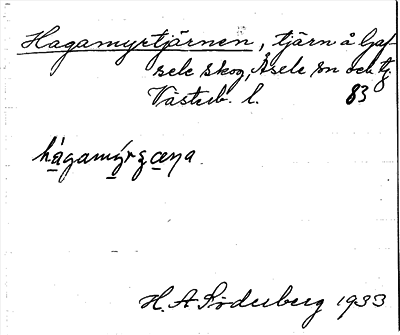 Hagamyrtjärnen, tjärn å Gaf-
sele skog, Åsele sn och tg.
Västerb. l. 83
H. A. Söderberg 1933